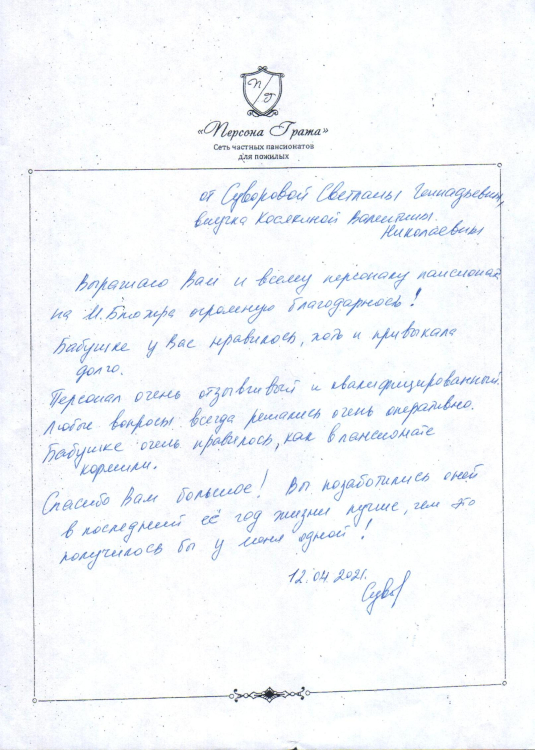 П/Г
«Персона Грата»
Сеть частных пансионатов
для пожилых
от Суворовой Светланы Геннадьевны,
внучка Косякиной Валентины
Николаевны
Выражаю Вам и всему персоналу пансионата
на М.Блюхера огромную благодарность!
Бабушке у Вас нравилось, хоть и привыкала
долго.
Персонал очень отзывчивый и квалифицированный.
Любые вопросы всегда решались очень оперативно.
Бабушке очень нравилось, как в пансионате
кормили.
Спасибо Вам большое! Вы позаботились о ней
в последний её год жизни лучше, чем это
получилось бы у меня одной!
12.04.2021.
Сув